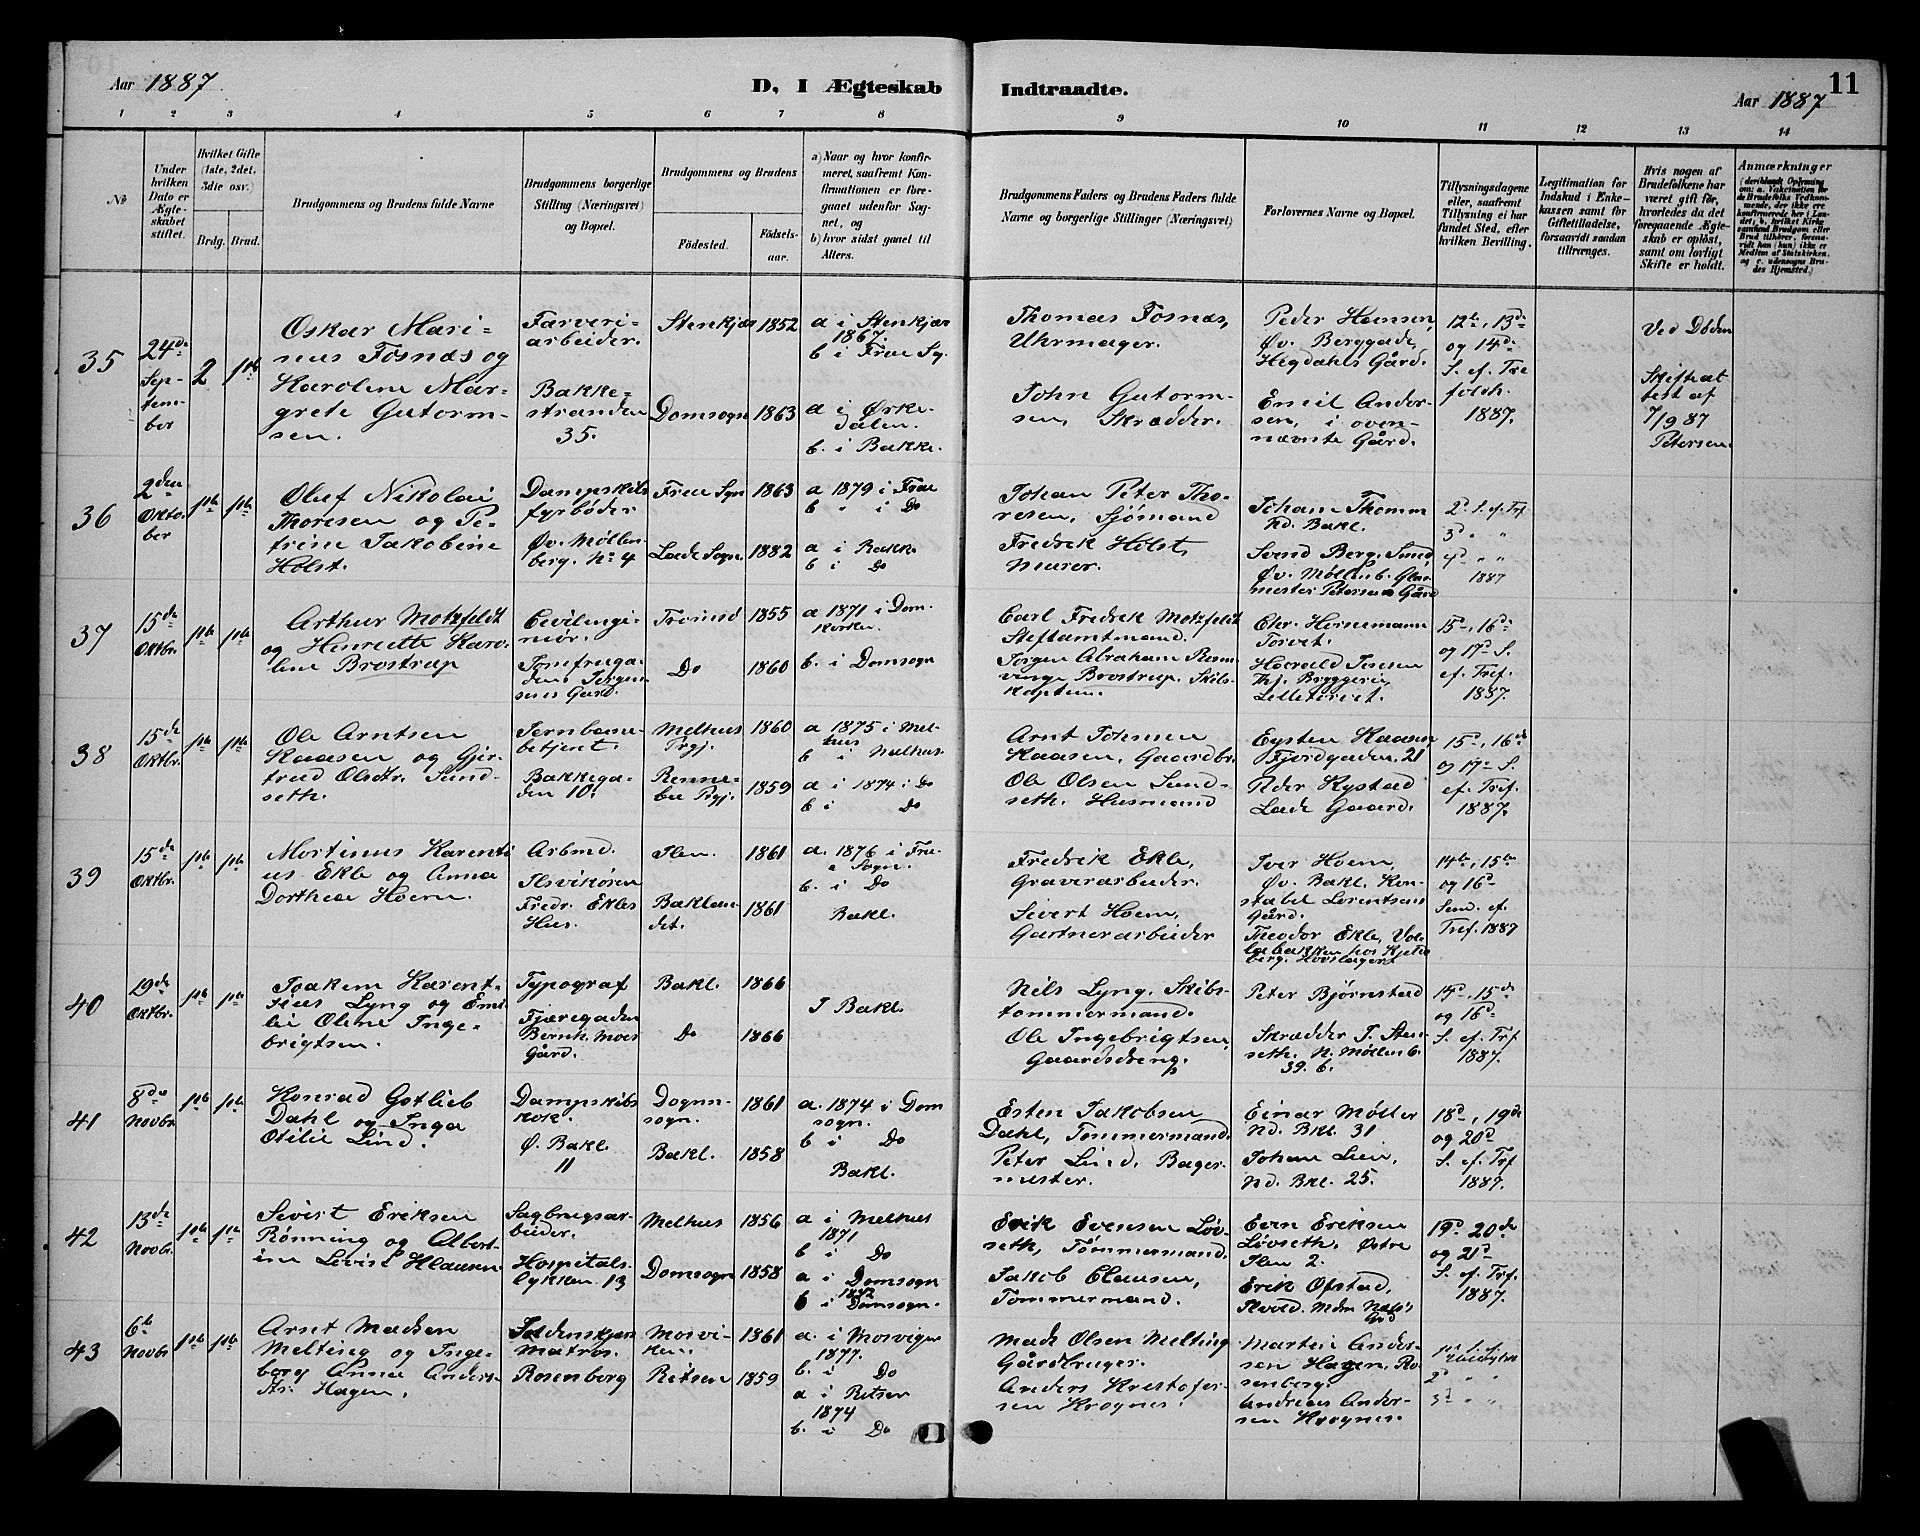 Aar 1887
D. I Ægteskab
Indtraadte.
Aar 1887
11
1 2 3 4 5 6 7 8 9 10 11 12 13 14
No
Under hvilken Dato er Ægteskabet stiftet.
Hvilket Gifte (1ste, 2det, 3die osv.)
Brdg. Brud.
Brudgommens og Brudens fulde Navne
Brudgommens borgerlige Stilling (Næringsvei) og Bopæl.
Brudgommens og Brudens
Fødested.
Fødselsaar.
a) Naar og hvor konfirmeret, saafremt Konfirmationen er foregaaet udenfor Sognet, og
b) hvor sidst gaaet til Alters.
Brudgommens Faders og Brudens Faders fulde Navne og borgerlige Stillinger (Næringsvei)
Forlovernes Navne og Bopæl.
Tillysningsdagene eller, saafremt Tillysning ei har fundet Sted, efter hvilken Bevilling.
Legitimation for Indskud i Enkekassen samt for Giftetilladelse, forsaavidt saadan tiltrænges.
Hvis nogen af Brudefolkene har været gift før, hvorledes da det foregaaende Ægteskab er opløst, samt om lovligt Skifte er holdt.
Anmærkninger
35
24de
Septem-
ber
2
1ste
Oskar Mari-
nus Fosnæs og
Karoline Mar-
grete Gutorm-
sen.
Farveri-
arbeider.
Bakke-
stranden
35.
Stenkjær 1852
Domsogn 1863
a i Stenkjær
1867.
b i Frue Sg.
a i Ørke-
dalen.
b. i Bakke.
Thomas Fosnæs,
Uhrmager.
John Gutorm-
sen, Skrædder.
Peder Hoensen,
Øv. Berggade,
Hegdahls Gård.
Emil Ander-
sen, i oven-
nævnte Gård.
12te, 13de
og 14de
S. ef. Tre
foldh.
1887.
Ved Døden
Skifteat-
test af
7/9 87
Petersen.
36
2den
Oktober
1ste 1ste
Oluf Nikolai
Thoresen og Pe-
trine Jakobine
Holst.
Dampskibs
fyrbøder
Øv. Møllen-
berg. No 4
Frue Sogn 1863
Lade Sogn. 1882
a 1879 i Frue
b " i Do
a i Bakke
b i Do
Johan Peter Tho-
resen, Sjømand
Fredrik Holst,
Murer.
Johan Thomm
Nd. Bakl.
Svend Berg. Smed
Øv. Møllenb. Glar-
mester Petersens Gård
2d S. ef. Trf
3d " "
4d " "
1887
37
15de
Oktbr.
1ste 1ste
Arthur Motzfeldt
og Henriette Karo-
line Brostrup
Civilingi-
niør.
Jomfruga-
dens Jørgen-
sens Gård.
Tromsø 1855
Do 1860
a 1871 i Dom-
kirken.
b. i Domsogn
Carl Fredrik Motzfeldt
Stiftamtmand.
Jørgen Abraham
Brostrup. Skibs-
kaptein.
Chr. Hornemann
Torvet.
Harald Jensen
Thj. Bryggeri,
Lilletorvet.
15d, 16d
og 17d S.
ef. Tref.
1887.
38
15de
Oktbr.
1ste 1ste
Ole Arntsen
Kaasen og Gjer-
trud Olsdtr. Sund-
seth.
Jernbane-
betjent.
Bakkega-
den 10.
Melhus
Prgj. 1860
Renne-
bu Prgj. 1859
a 1875 i Mel-
hus
b i Melhus
a i 1874 i Do
b i Do
Arnt Johnsen
Kaasen, Gaardbr.
Ole Olsen Sund-
seth. Husmand
Eysten Kaasen
Fjordgaden. 21
Peder Rystad
Lade Gaard.
15d, 16de
og 17d S.
ef. Tref.
1887.
39
15de
Oktbr.
1ste 1ste
Mortinus Karenti
us Ekle og Anna
Dorthea Hoem.
Arbmd.
Ilsvikøren
Fredr. Ekles
Hus.
Ilen. 1861
Baklan-
det. 1861
a. 1876 i Fru-
e Sogn.
b. i Do
Bakl.
Fredrik Ekle,
Graverarbeider.
Sivert Hoem,
Gartnerarbeider
Iver Hoem,
Øv. Bakl. Kon-
stabel Lorentsens
Gård.
Theodor Ekle,
14de, 15de
og 16d
Sønd. ef.
Tref. 1887
40
19de
Oktbr.
1ste 1ste
Joakim Karent-
sius Lyng og Emi-
lie Oline Inge-
brigtsen.
Typograf
Fjæregaden
Bernh. Moes
Gård.
Bakl. 1866
Do 1866
I Bakl.
Nils Lyng. Skibs-
tømmermand.
Ole Ingebrigtsen,
Gaardsdreng.
Peter Bjørnstad
Skrædder J. Sten-
seth. N. Møllenb.
39. b.
14d, 15de
og 16d
S. ef. Trf
1887.
41
8de
Novbr
1ste 1ste
Konrad Gotlieb
Dahl og Inga
Otilie Lind.
Dampskibs
kok.
Ø. Bakl.
11
Domsogn. 1861
Bakl. 1858
a. 1874 i Dom
sogn.
b i Do
Bakl.
Esten Jakobsen
Dahl, Tømmermand.
Peter Lind. Bager-
mester.
Einar Møller
Nd. Bkl. 31
Johan Lien,
Nd. Bkl. 25.
18d, 19de
og 20d
S. ef. Trf
1887.
42
13de
Novbr.
1ste 1ste
Sivert Eriksen
Rønning og Albert-
ine Lovise Klausen
Sagbrugsar-
beider.
Hospitals-
lykken 13
Melhus 1856
Domsogn 1858
a i Melhus
1871
b i Do
a i Domsogn
1872
b i Domsogn.
Erik Evensen Løv-
seth, Tømmermand.
Jakob Clausen,
Tømmermand.
Even Eriksen
Løvseth. Østre
Ilen 2.
Erik Øfstad,
19d 20de
og 21d
S. ef. Trf.
1887.
43
6te
Novbr
1ste 1ste
Arnt Madsen
Melting og Inge-
borg Anna Anders-
dtr. Hagen.
Matros.
Rosenborg
Mosvi-
ken. 1861
Ritsen 1859
a. i Mosvigen
1877.
b. i Do
a i Ritsen
1874
b. i Do
Mads Olsen Melting
Gårdbruger.
Anders Kristofer-
sen Krognes.
Martin Ander-
sen Hagen, Ro-
senborg.
Andreas Ander-
sen Krognes.
1ste S. ef.
2d " "
3d " "